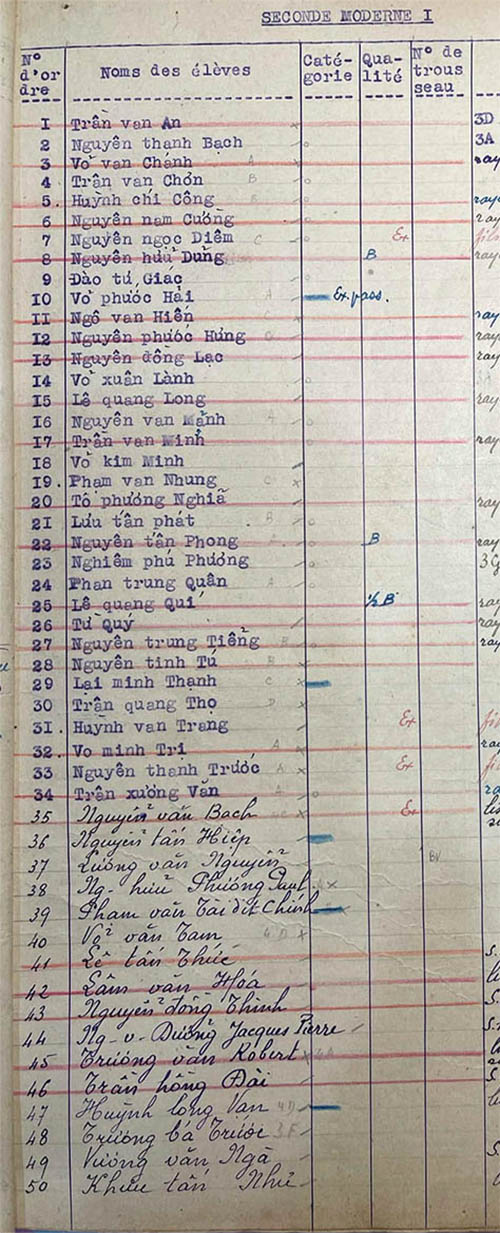 SECONDE MODERNE I
N° d'or dre Noms des élèves Caté- gorie Qua- lité N° de trous seau
I Trần van An x 3D
2 Nguyên thanh Bạch o 3A
3 Vỏ van Chánh A x
4 Trân van Chơn B o
5. Huỳnh chi Công o ray
6 Nguyên nam Cường o ray
7 Nguyên ngọc Diêm C o Ex
8 Nguyên hửu Dung B ray
9 Đào tứ Giác o
10 Vỏ phước Hải A Ex. pass.
11 Ngô van Hiến ray
12 Nguyên phước Hưng ray
13 Nguyên đông Lạc ray
14 Vỏ xuân Lành o 3A
15 Lê quang Long ray
16 Nguyên van Mảnh A
17 Trân van Minh o ray
18 Vỏ kim Minh
19. Phạm van Nhung C x
20 Tô phương Nghiã ray
21 Lưu tân phát B o
22 Nguyên tân Phong A o B ray
23 Nghiêm phú Phương o 3G
24 Phan trung Quân A x
25 Lê quang Quí ½ B ray
26 Tư Quý ray
27 Nguyên trung Tiểng B o ray
28 Nguyên tinh Tú B x
29 Lại minh Thạnh C x
30 Trân quang Thọ D x
31. Huỳnh van Trang Ex
32. Vo minh Tri A x ray
33 Nguyên thanh Trước A x Ex
34 Trân xương Văn A o
35 Nguyễn văn Bach x Ex
36 Nguyễn tấn Hiêp
37 Lương văn Nguyễn BV
38 Ng- hửu Phương Paul x
39 Pham văn Tài dit Chính
40 Võ văn Tam 4D x
41 Lê tấn Thức S.
42 Lâm văn Hóa
43 Nguyễn đồng Thình S.
44 Ng-v- Dưỡng Jacques Pierre
45 Trương văn Robert x
46 Trần hồng Đài S.
47 Huỳnh long Van 4D
48 Trương bá Trước 3F
49 Vương văn Ngà S.
50 Khưu tấn Như